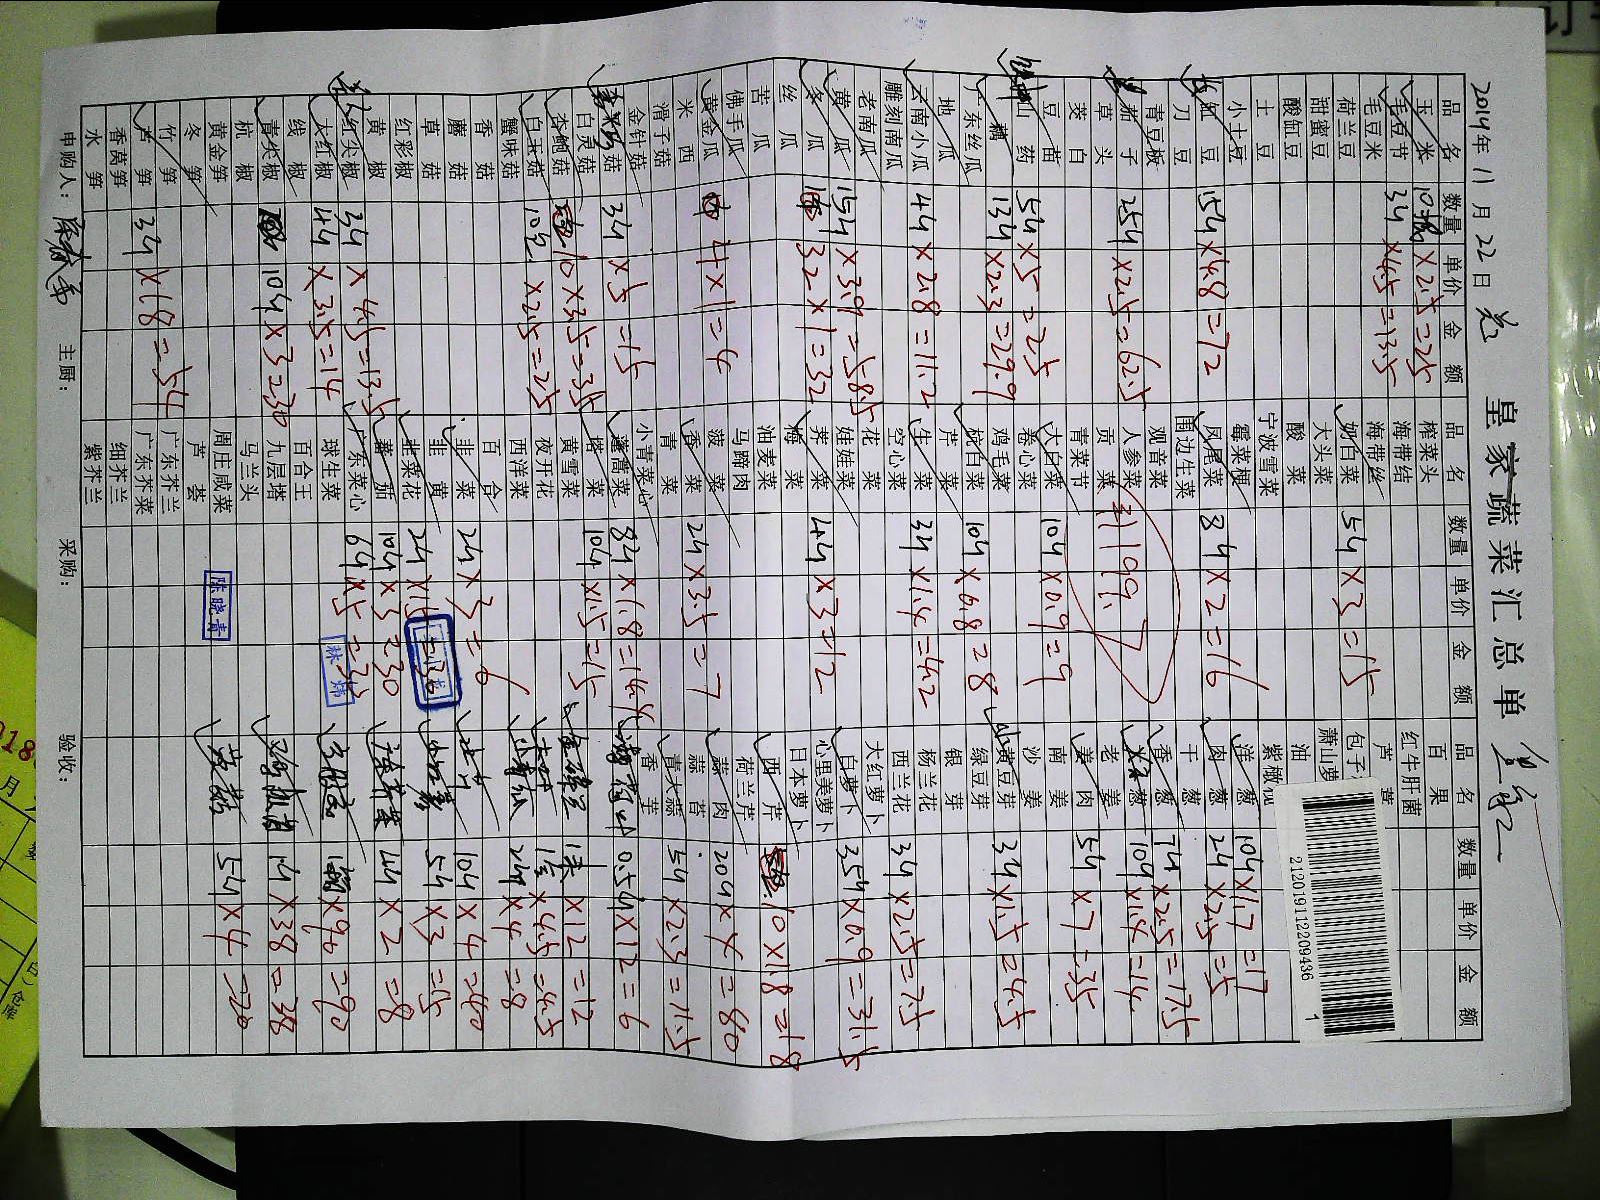 皇家蔬菜汇总单
2014年11月22日
品名 数量 单价 金额
玉米 10 ×2.5=25
毛豆节 3斤 ×4.5=13.5
毛豆米
荷兰豆
甜蜜豆
酸缸豆
土豆
小土豆
缸豆 15斤 ×4.8=72
刀豆
青豆板
茄子 25斤 ×2.5=62.5
草头
茭白
豆苗
山药 5斤 ×5=25
糖 13斤 ×2.3=29.9
广东丝瓜
地瓜
云南小瓜 4斤 ×2.8=11.2
雕刻南瓜
老南瓜
黄瓜 15斤 ×3.9=58.5
冬瓜 32×1=32
丝瓜
苦瓜
佛手瓜
黄金瓜 4×1=4
西米
滑子菇
金针菇
菇 3斤 ×5=15
白灵菇
杏鲍菇 10×3.5=35
白玉菇 10包 ×2.5=25
蟹味菇
香菇
蘑菇
草菇
红彩椒
黄椒
红尖椒 3斤 ×4.5=13.5
大红椒 4斤 ×3.5=14
线椒
青尖椒 10斤 ×3=30
杭椒
黄金笋
冬笋
竹笋
芦笋 3斤 ×18=54
香莴笋
水笋
品名 数量 单价 金额
榨菜头
海带结
海带丝
奶白菜 5斤 ×3=15
大头菜
酸菜
宁波雪菜
霉菜梗
凤尾菜 8斤 ×2=16
围边生菜
观音菜
人参菜
贡菜 1199.7
青菜节
大白菜 10斤 ×0.9=9
卷心菜
鸡毛菜
杭白菜 10斤 ×0.8=8
芹菜
生菜 3斤 ×1.4=4.2
空心菜
花菜
娃娃菜
荠菜 4斤 ×3=12
海菜
油麦菜
马蹄肉
菠菜
香菜 2斤 ×3.5=7
青菜
小青菜心
蓬蒿菜 8斤 ×1.8=14.4
塔菜 10斤 ×1.5=15
黄雪菜
夜开花
西洋菜
百合
韭菜 2斤 ×3=6
韭黄
韭菜花 2斤
蕃茄 10斤 ×3=30
广东菜心 6斤 ×5=30
球生菜
百合王
九层塔
马兰头
周庄咸菜
芦荟
广东芥兰
广东芥菜
细芥兰
紫芥兰
品名 数量 单价 金额
百果
红牛肝菌
芦
包子
萧山萝
油
紫橄榄
洋葱 10斤 ×1.7=17
肉葱 2斤 ×2.5=5
干葱
香葱 7斤 ×2.5=17.5
葱 10斤 ×1.4=14
老姜
姜肉 5斤 ×7=35
南姜
沙姜
黄豆芽 3斤 ×1.5=4.5
绿豆芽
银芽
杨兰花
西兰花 3斤 ×2.5=7.5
大红萝卜
白萝卜 35斤 ×0.9=31.5
心里美萝卜
日本萝卜
西芹 10×1.8=18
荷兰芹
蒜肉 20斤 ×4=80
蒜苔
青大蒜 5斤 ×2.3=11.5
香芋
0.5斤 ×12=6
×12=12
×4.5=4.5
2斤 ×4=8
10斤 ×4=40
5斤 ×3=15
4斤 ×2=8
×90=90
1斤 ×38=38
5斤 ×4=20
申购人： 主厨： 采购： 验收：
陈晓青
林炜
2120191122209436
1
018
月
仓库